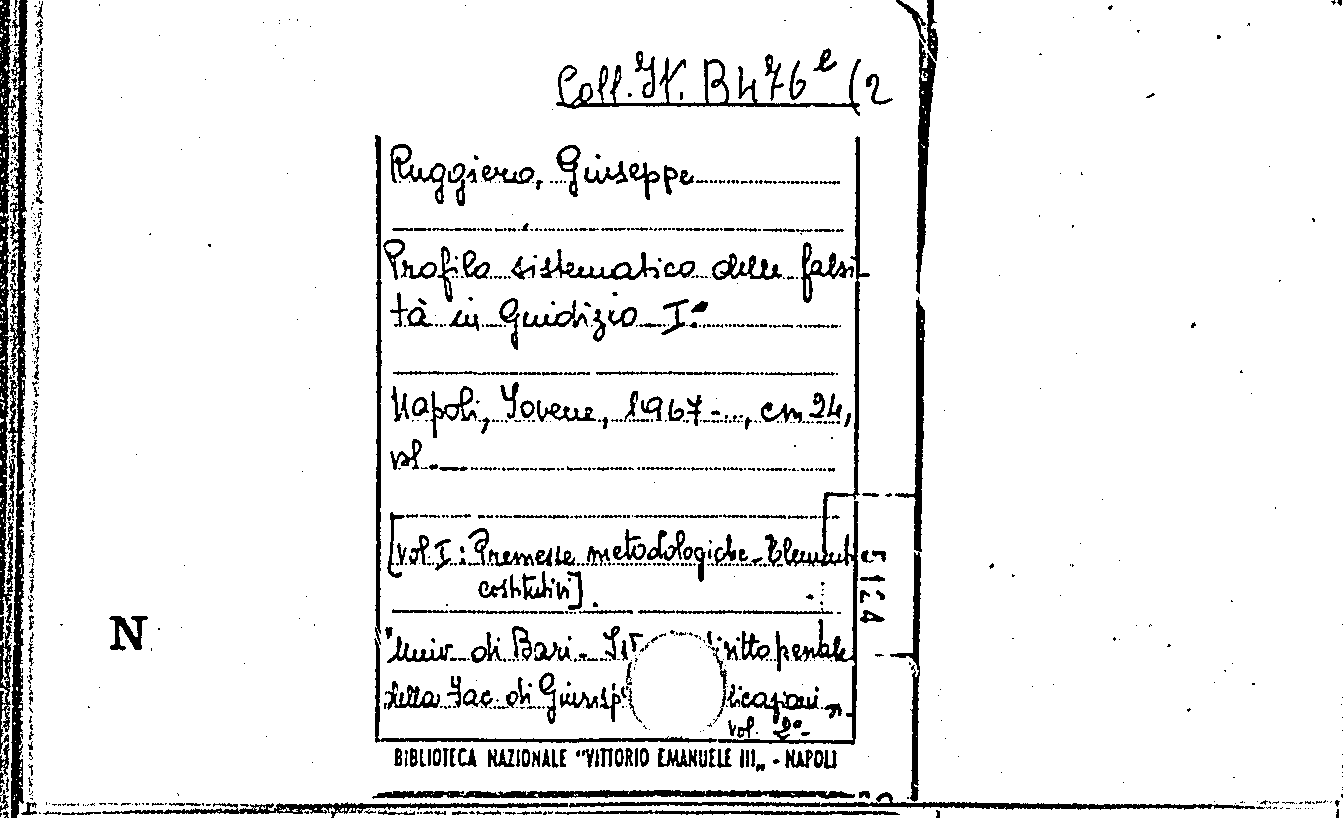 Coll. It. B 476 e (2
Ruggiero, Giuseppe
Profilo sistematico delle falsi-
tà in Giudizio I.°
Napoli, Jovene, 1967-..., cm 24,
vol.
[vol I: Premesse metodologiche - Elementi
costitutivi].
"Univ. di Bari - Ist diritto penale
della Fac. di Giurisp licazioni "
vol. 2°-
BIBLIOTECA NAZIONALE "VITTORIO EMANUELE III„ - NAPOLI
N
5124